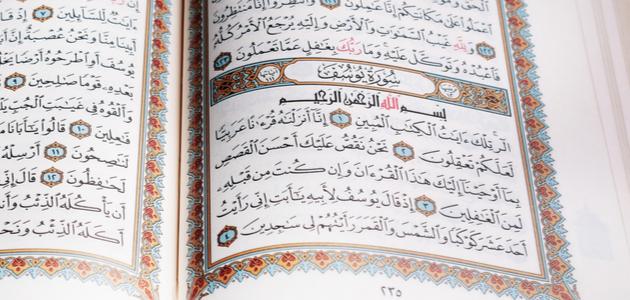 ٱعْمَلُوا۟ عَلَىٰ مَكَانَتِكُمْ إِنَّا عَٰمِلُونَ ١٢١ وَٱنتَظِرُوٓا۟ إِنَّا مُنتَظِرُونَ
١٢٢ وَلِلَّهِ غَيْبُ ٱلسَّمَٰوَٰتِ وَٱلْأَرْضِ وَإِلَيْهِ يُرْجَعُ ٱلْأَمْرُ كُلُّهُۥ
فَٱعْبُدْهُ وَتَوَكَّلْ عَلَيْهِ وَمَا رَبُّكَ بِغَٰفِلٍ عَمَّا تَعْمَلُونَ ١٢٣
سُورَةُ يُوسُفَ
بِسْمِ ٱللَّهِ ٱلرَّحْمَٰنِ ٱلرَّحِيمِ
الٓر تِلْكَ ءَايَٰتُ ٱلْكِتَٰبِ ٱلْمُبِينِ ١ إِنَّآ أَنزَلْنَٰهُ قُرْءَٰنًا عَرَبِيًّا
لَّعَلَّكُمْ تَعْقِلُونَ ٢ نَحْنُ نَقُصُّ عَلَيْكَ أَحْسَنَ ٱلْقَصَصِ
بِمَآ أَوْحَيْنَآ إِلَيْكَ هَٰذَا ٱلْقُرْءَانَ وَإِن كُنتَ مِن قَبْلِهِۦ
لَمِنَ ٱلْغَٰفِلِينَ ٣ إِذْ قَالَ يُوسُفُ لِأَبِيهِ يَٰٓأَبَتِ إِنِّى رَأَيْتُ
أَحَدَ عَشَرَ كَوْكَبًا وَٱلشَّمْسَ وَٱلْقَمَرَ رَأَيْتُهُمْ لِى سَٰجِدِينَ ٤
٢٣٥
ءَايَٰتٌ لِّلسَّآئِلِينَ ٧ إِذْ
أَبِينَا مِنَّا وَنَحْنُ عُصْبَةٌ
يُوسُفَ أَوِ ٱطْرَحُوهُ أَرْضًا
بَعْدِهِۦ قَوْمًا صَٰلِحِينَ ٩
وَأَلْقُوهُ فِى غَيَٰبَتِ ٱلْجُبِّ
فَٰعِلِينَ ١٠ قَالُوا۟ يَٰٓأَبَانَا
لَنَٰصِحُونَ ١١ أَرْسِلْهُ
لَحَٰفِظُونَ ١٢ قَالَ إِنِّى
أَن يَأْكُلَهُ ٱلذِّئْبُ
أَكَلَهُ ٱلذِّئْبُ وَنَحْنُ